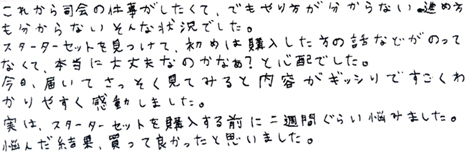 これから司会の仕事がしたくて、でもやり方が分からない。進め方
も分からないそんな状況でした。
スターターセットを見つけて、初めは購入した方の話などがのって
なくて、本当に大丈夫なのかなぁ？と心配でした。
今日、届いてさっそく見てみると内容がギッシリですごくわ
かりやすく感動しました。
実は、スターターセットを購入する前に二週間ぐらい悩みました。
悩んだ結果、買って良かったと思いました。